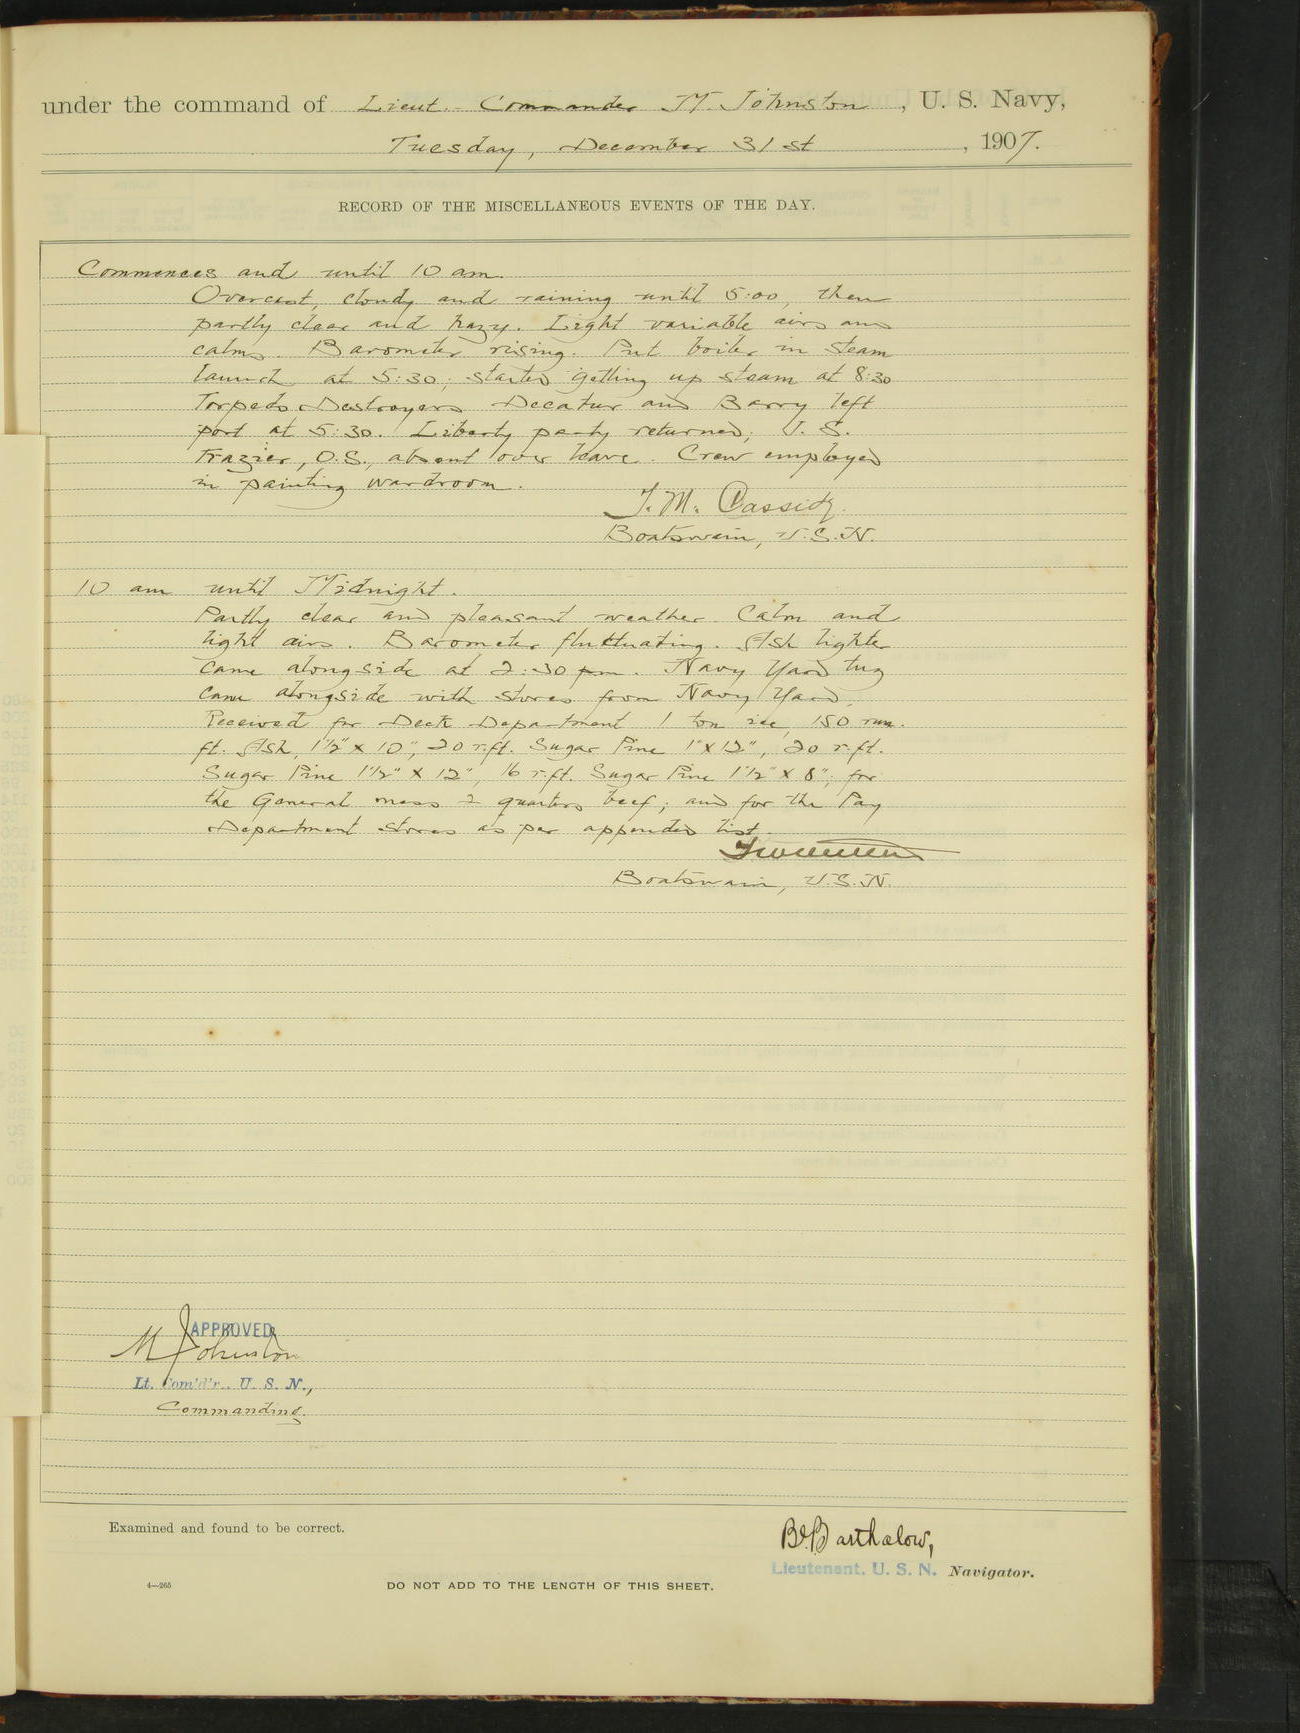 under the command of Lieut. Commander M. Johnston, U. S. Navy,
Tuesday, December 31st, 1907.
RECORD OF THE MISCELLANEOUS EVENTS OF THE DAY.
Commences and until 10 am.
Overcast, cloudy and raining until 5:00, then
partly clear and hazy. Light variable airs and
calms. Barometer rising. Put boiler in steam
launch at 5:30; started getting up steam at 8:30
Torpedo Destroyers Decatur and Barry left
port at 5:30. Liberty party returned; J. S.
Frazier, O.S., absent over leave. Crew employed
in painting wardroom.
J. M. Cassidy.
Boatswain, U.S.N.
10 am until Midnight.
Partly clear and pleasant weather. Calm and
light airs. Barometer fluctuating. Ash lighter
came alongside at 2:30 pm. Navy Yard tug
came alongside with stores from Navy Yard.
Received for Deck Department 1 ton ice, 150 run.
ft. Ash, 1½" x 10", 20 r.ft. Sugar Pine 1" x 12", 20 r.ft.
Sugar Pine 1½" x 12", 16 r.ft. Sugar Pine 1½" x 8"; for
the General mess 2 quarters beef; and for the Pay
Department stores as per appended list.
Boatswain, U.S.N.
APPROVED
M Johnston
Lt. Com'd'r., U. S. N.,
Commanding.
Examined and found to be correct.
Barthalow,
Lieutenant, U. S. N. Navigator.
4—265
DO NOT ADD TO THE LENGTH OF THIS SHEET.